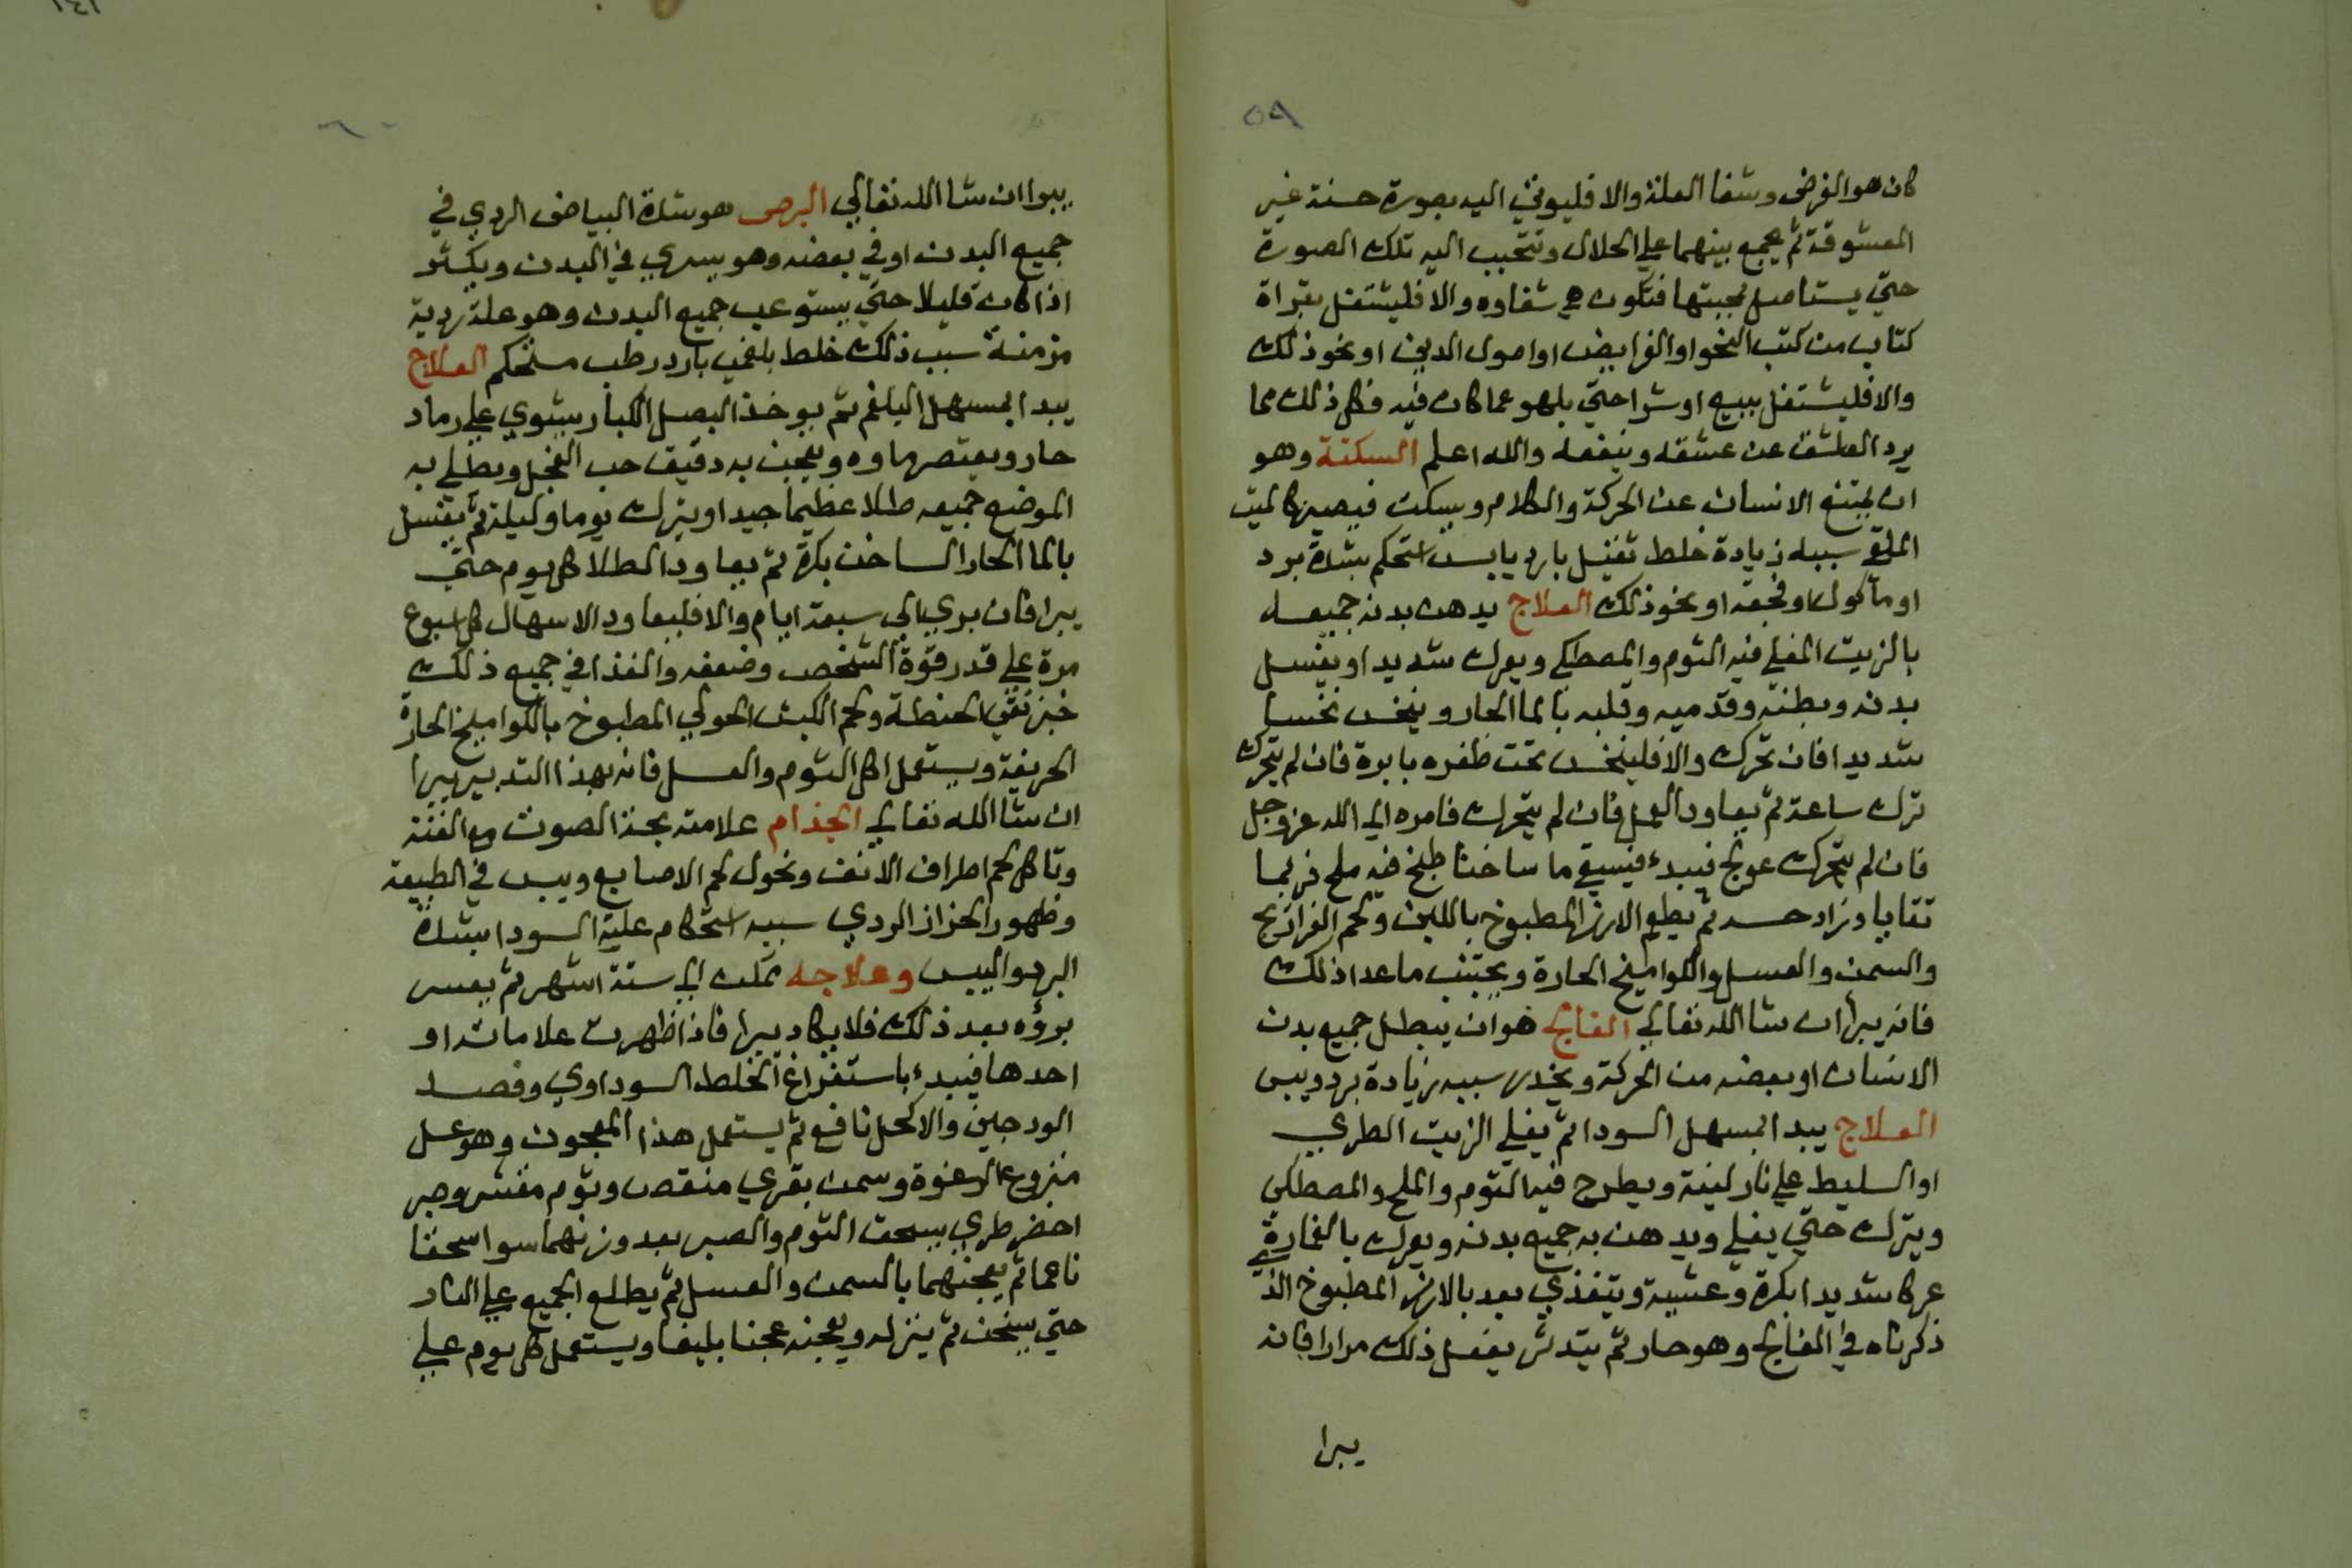 ٥٩
كان هو الغرض وشفا العلة والا فليوتي اليه بصورة حسنة غير
المعشوقة ثم يجمع بينهما علي الحلال وتتحبب اليه تلك الصورة
حتي يستاصل محبتها فتكون هي شفاوه والا فليشتغل بقراة
كتاب من كتب النحو او الفرايض او اصول الدين او نحو ذلك
والا فليشتغل ببيع او شرا حتي يلهو عما كان فيه فكل ذلك مما
يرد العاشق عن عشقه وينفعه والله اعلم السكتة وهو
ان يمتنع الانسان عن الحركة والكلام ويسكت فيصير كالميت
الملقي سببه زيادة خلط ثقيل بارد يابس استحكم بشدة برد
او ماكول او فجعة او نحو ذلك العلاج يدهن بدنه جميعه
بالزيت المغلي فيه الثوم والمصطكي ويعرك شديدا ويغسل
بدنه وبطنه وقدميه وقلبه بالما الحار وينخس نخسا
شديدا فان تحرك والا فلينخس تحت ظفره بابرة فان لم يتحرك
ترك ساعة ثم يعاود العمل فان لم يتحرك فامره الي الله عز وجل
فان لم يتحرك عولج فيبدء فيسقي ما ساخنا طبخ فيه ملح فربما
تقايا وزاد حسه ثم يطعم الارز المطبوخ باللبن ولحم الفراريج
والسمن والعسل والكواميخ الحارة ويجتنب ماعدا ذلك
فانه يبرا ان شا الله تعالي الفالج هو ان يبطل جميع بدن
الانسان او بعضه من الحركة ويخدر سببه زيادة برد ويبس
العلاج يبدا بمسهل السودا ثم يغلي الزيت الطري
او السليط علي نار لينة ويطرح فيه الثوم والملح والمصطكي
ويترك حتي يغلي ويدهن به جميع بدنه ويعرك بالفارة
عركا شديدا بكرة وعشية ويتغذي بعد بالارز المطبوخ الذ
ذكرناه في الفالج وهو حار ثم يتدثر يفعل ذلك مرارا فانه
يبرا
٦٠
يبرا ان شا الله تعالي البرص هو شدة البياض الردي في
جميع البدن او في بعضه وهو يسري في البدن ويكثر
اذا كان قليلا حتي يستوعب جميع البدن وهو علة ردية
مزمنة سبب ذلك خلط بلغمي بارد رطب مستحكم العلاج
يبدا بمسهل البلغم ثم يوخذ البصل الكبار يشوي علي رماد
حار ويعتصر ماوه ويعجن به دقيق حب الفجل ويطلي به
الموضع جميعه طلا عظيما جيدا ويترك يوما وليلة ثم يغسل
بالما الحار الساخن بكرة ثم يعاود الطلا كل يوم حتي
يبرا فان بري الي سبعة ايام والا فليعاود الاسهال كل اسبوع
مرة علي قدر قوة الشخص وضعفه والغذا في جميع ذلك
خبز نقي الحنطة ولحم الكبش الحولي المطبوخ بالكواميخ الحارة
الحريفة ويستعمل اكل الثوم والعسل فانه بهذا التدبير يبرا
ان شا الله تعالي الجذام علامته بحة الصوت مع الغنة
وتاكل لحم اطراف الانف ونحول لحم الاصابع ويبس في الطبيعة
وظهور الحزاز الردي سببه استحكام علية السودا بشدة
البرد واليبس وعلاجه ممكن الي ستة اشهر ثم يعسر
بروه بعد ذلك فلا يكاد يبرا فاذا ظهرت علاماته او
احدها فيبدء باستفراغ الخلط السوداوي وفصد
الودجين والاكحل نافع ثم يستعمل هذا المعجون وهو عسل
منزوع الرغوة وسمن بقري منقص وثوم مقشر وصبر
اخضر طري يسحق الثوم والصبر بعد وزنهما سوا سحقا
ناعما ثم يعجنهما بالسمن والعسل ثم يطلع الجميع علي النار
حتي يسخن ثم ينزله ويعجنه عجنا بليغا ويستعمل كل يوم علي